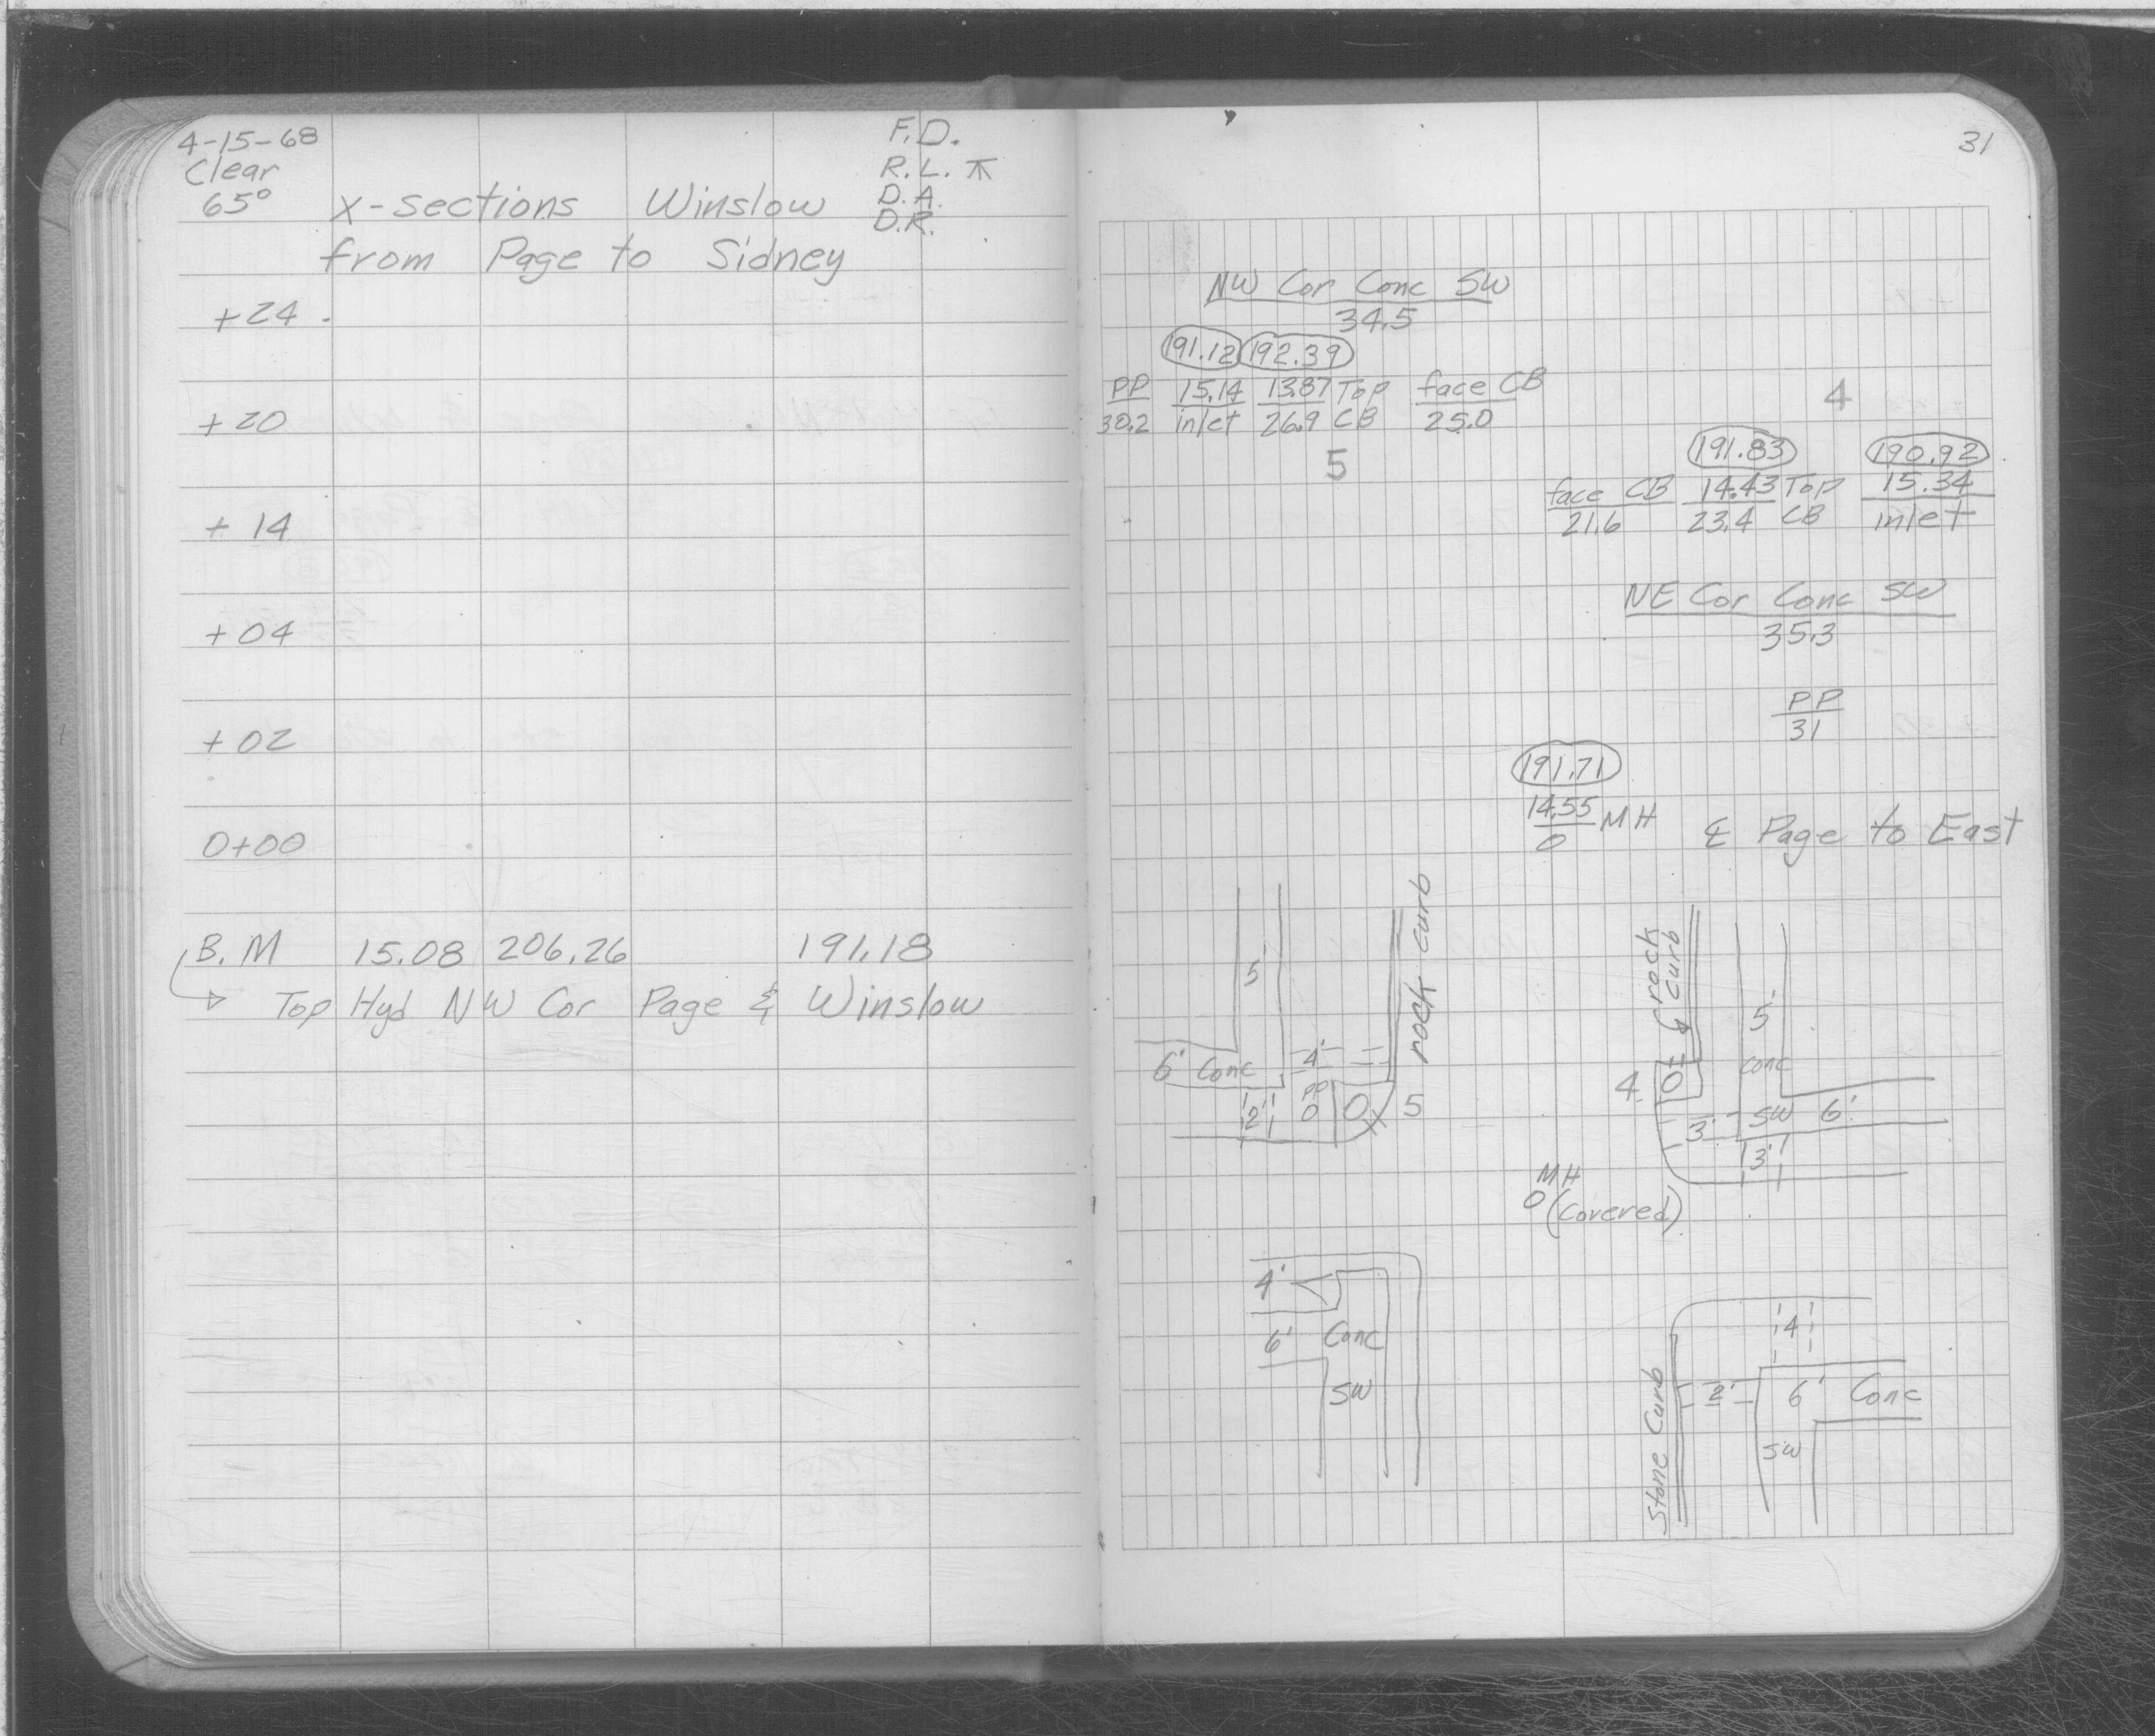 4-15-68
Clear
65°
F.D.
R.L. ⊼
D.A.
D.R.
X-sections Winslow
from Page to Sidney
+24
+20
+14
+04
+02
0+00
B.M 15.08 206.26 191.18
Top Hyd NW Cor Page & Winslow
31
NW Cor Conc SW
34.5
191.12 192.39
PP 15.14 13.87 Top face CB
30.2 inlet 26.9 CB 25.0
4
5
191.83 190.92
face CB 14.43 Top 15.34
21.6 23.4 CB inlet
NE Cor Conc SW
35.3
PP
31
191.71
14.55 MH
0
℄ Page to East
rock curb
5'
6' Conc
4'
2'
PP
0
5
rock
curb
5'
conc
4
3'
SW 6'
3'
MH
0 (covered)
4'
6' Conc
SW
Stone Curb
4'
2' 6' Conc
SW